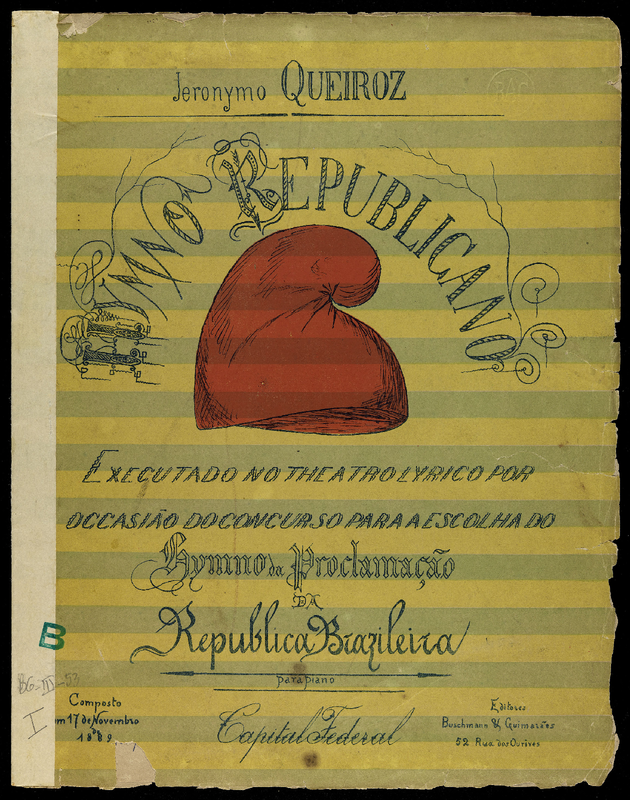 Jeronymo QUEIROZ
HYMNO REPUBLICANO
EXECUTADO NO THEATRO LYRICO POR
OCCASIÃO DO CONCURSO PARA A ESCOLHA DO
Hymno da Proclamação
DA
Republica Brazileira
para piano
B
BG-III-53
I
Composto
em 17 de Novembro
de
1889
Capital Federal
Editores
Buschmann & Guimarães
52 Rua dos Ourives